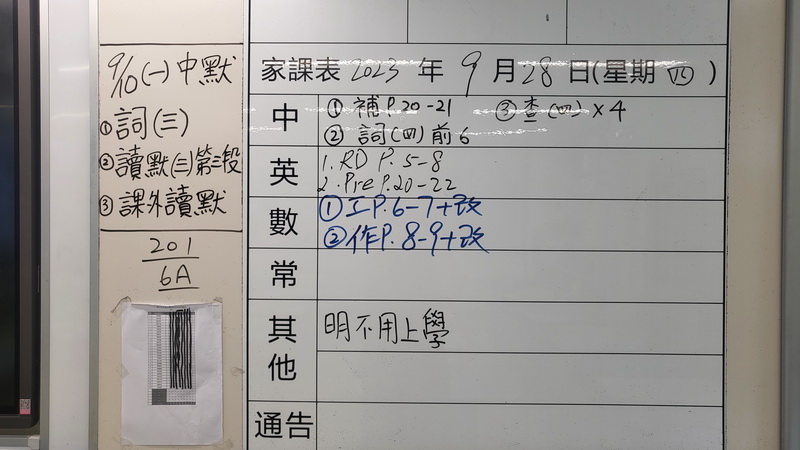 9/10(一)中默
①詞(三)
②讀默(三)第三段
③課外讀默
201
6A
家課表 2023 年 9 月 28 日(星期 四 )
中 ①補P.20-21 ③查(四)×4
②詞(四)前6
英 1.RD P. 5-8
2.Pre P.20-22
數 ①工P.6-7+改
②作P.8-9+改
常
其他 明不用上學
通告